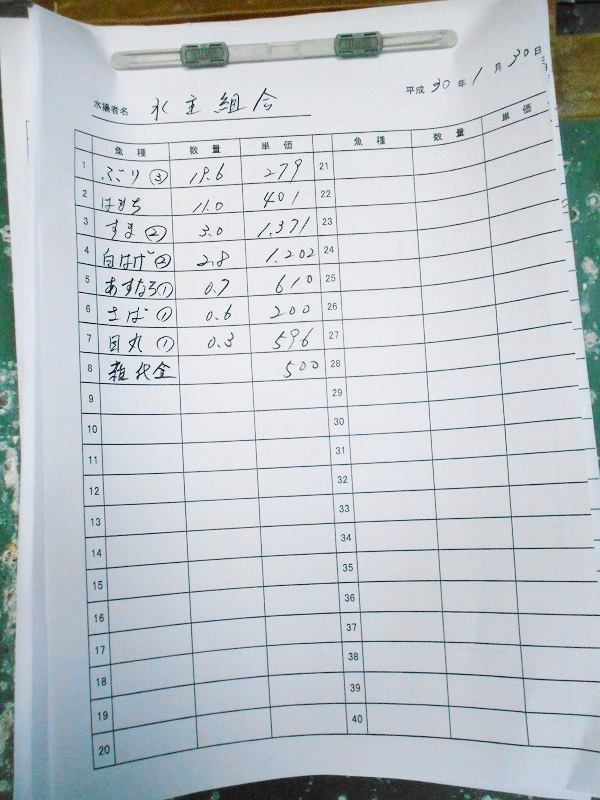 平成 30 年 1 月 30 日
水揚者名 水主組合
魚種 数量 単価 魚種 数量 単価
1 ぶり ③ 19.6 279 21
2 はまち 11.0 401 22
3 すま ② 3.0 1,371 23
4 白はげ ② 2.8 1,202 24
5 あすなろ ① 0.7 610 25
6 さば ① 0.6 200 26
7 目丸 ① 0.3 596 27
8 雑代金 500 28
9 29
10 30
11 31
12 32
13 33
14 34
15 35
16 36
17 37
18 38
19 39
20 40